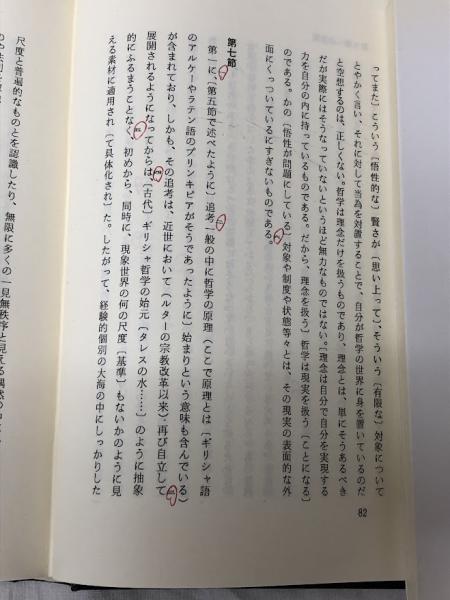 ってまた〕こういう〔悟性的な〕賢さが〔思い上って〕、そういう〔有限な〕対象について
とやかく言い、それに対して当為を対置することで、自分が哲学の世界に身を置いているのだ
と空想するのは、正しくない。哲学は理念だけを扱うものであり、理念とは、単にそうあるべき
だが実際にはそうなっていないというほど無力なものではない。〔理念は自分で自分を実現する
力を自分の内に持っているものである。だから、理念を扱う〕哲学は現実を扱う〔ことになる〕
のである。かの〔悟性が問題にしている〕対象や制度や状態等々とは、その現実の表面的な外
面にくっついているにすぎないものである。
第七節
第一に、〔第五節で述べたように〕追考一般の中に哲学の原理（ここで原理とは〔ギリシャ語
のアルケーやラテン語のプリンキピアがそうであったように〕始まりという意味も含んでいる）
が含まれており、しかも、その追考は、近世において〔ルターの宗教改革以来〕再び自立して
展開されるようになってからは〔古代〕ギリシャ哲学の始元〔タレスの水……〕のように抽象
的にふるまうことなく、初めから、同時に、現象世界の何の尺度〔基準〕もないかのように見
える素材に適用され〔て具体化され〕た。したがって、経験的個別の大海の中にしっかりした
尺度と普遍的なものとを認識したり、無限に多くの一見無秩序と見える偶然の
82